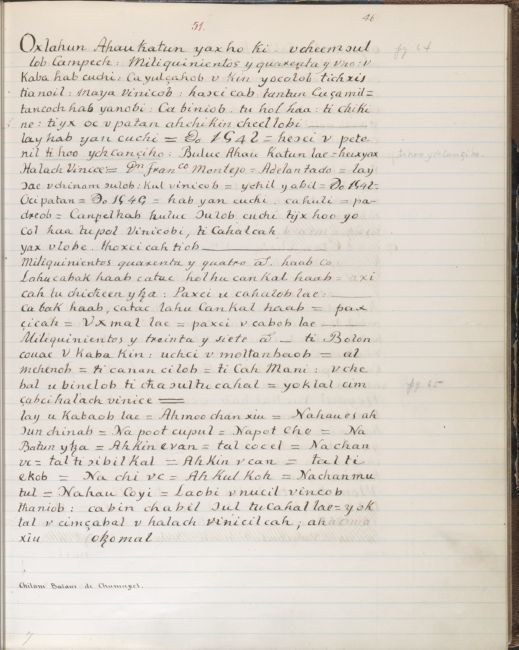 51.
46
Oxlahun Ahau katun yax ho ki v cheem sul
lob Campech: Miliquinientos y quarenta y vno: v
Kaba hab cuchi: Ca yulçahob v kin yocolob tichxis
tianoil: maya vinicob: hasci cab tantun Cuçamil=
tancoch hab yanobi: Ca biniob. tu hol haa: ti chiki
ne: tiyx oc v patan ahchikin cheel lobi
lay hab yan cuchi = Do 1542 = hesci v pete
nil ti hoo ychcançiho: Buluc Ahau Katun lae = heuyax
Halach Vinic = Dn franco Montejo = Adelantado = lay
sae v chinam sulob: kul vinicob = yohil yabil = Do 1542=
Oci patan = Do 1549 = hab yan cuchi. cahuli = pa-
dreob = Canpel hab huluc sulob cuchi tijx hoo yo
col haa tu pol Vinicobi, ti Cahalcah
yax v lobe. thoxci cah tiob
Miliquinientos quarenta y quatro as. haab Co
Lahu cabak haab catuc holhu can kal haab = axi
cah tu chicheen ytza: Paxci u cahalob lae:
Ca bak haab, catac lahu Can kal haab = pax
çicah = Vxmal lae = paxci v cabob lae
Miliquinientos y treinta y siete as — ti Bolon
couac V kaba kin: uchci v moltanbaob = al
mehenob = ti canan cilob = ti Cah Mani: v che
bal u binelob ti cha sul tu cahal = yoklal cim
çabci halach vinice =
lay u Kabaob lae = Ahmoo chan xiu = Nahau es ah
sun chinab = Na poot cupul = Napot Che = Na
Batun ytza = Ah Kin evan = tal cocel = Na chan
vc = tal ti sibil Kal = Ah Kin v can = tal ti
ekob = Na chi vc = Ah Kul Koh = Nachanmu
tul = Nahau Coyi = Laobi v nucil vincob
thaniob: cabin chabil sul tu Cahal lae = yok
lal v cimçabal v halach vinicil cah, ah
xiu
Chilam Balam de Chumayel.